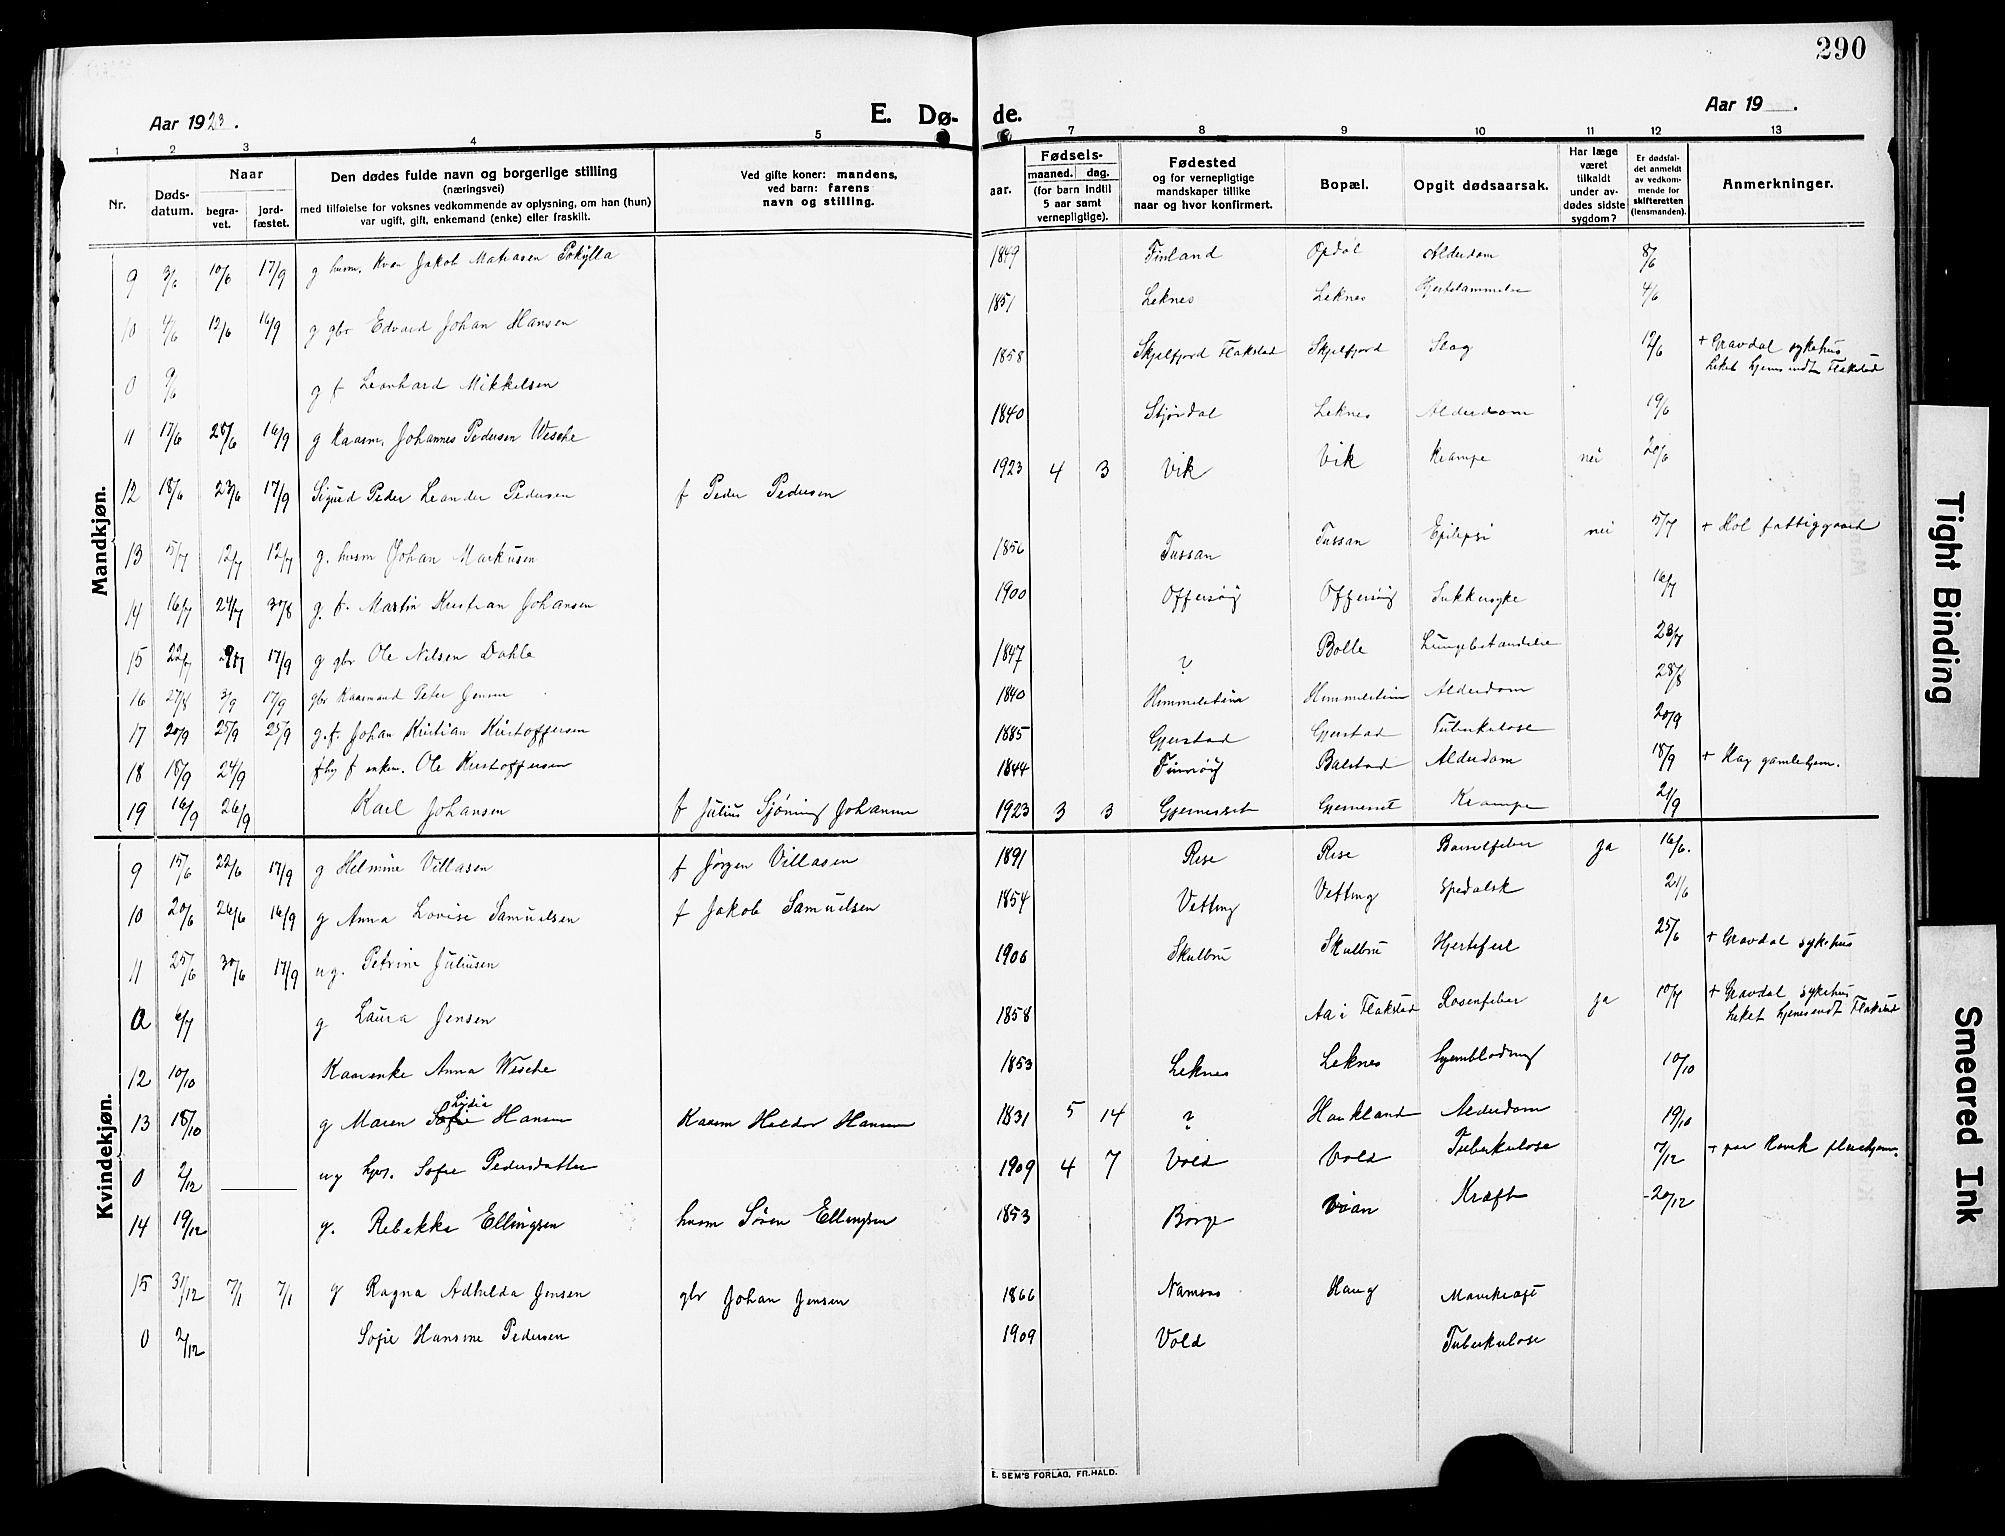 290
Aar 1923.
E. Dø-
de.
Aar 19 .
1 2 3 4 5 7 8 9 10 11 12 13
Nr.
Døds-
datum.
Naar
begra-
vet.
jord-
fæstet.
Den dødes fulde navn og borgerlige stilling
(næringsvei)
med tilføielse for voksnes vedkommende av oplysning, om han (hun)
var ugift, gift, enkemand (enke) eller fraskilt.
Ved gifte koner: mandens,
ved barn: farens
navn og stilling.
Fødsels-
aar.
maaned. dag.
(for barn indtil
5 aar samt
vernepligtige).
Fødested
og for vernepligtige
mandskaper tillike
naar og hvor konfirmert.
Bopæl.
Opgit dødsaarsak.
Har læge
været
tilkaldt
under av-
dødes sidste
sygdom?
Er dødsfal-
det anmeldt
av vedkom-
mende for
skifteretten
(lensmanden).
Anmerkninger.
Mandkjøn.
9 3/6 10/6 17/9 g husm. Kvæn Jakob Matiasen 1849 Finland Opdøl Alderdom 8/6
10 4/6 12/6 16/9 g gbr Edvard Johan Hansen 1851 Leknes Leknes Hjertelammelse 4/6
0 9/6 g f Leonhard Mikkelsen 1858 Skjelfjord Flakstad Skjelfjord Slag 12/6 + Gravdal sykehus
Liket hjemsendt Flakstad
11 17/6 25/6 16/9 g Kaarm. Johannes Pedersen Wesche 1840 Stjørdal Leknes Alderdom 19/6
12 18/6 23/6 17/9 Sigurd Peder Leander Pedersen f Peder Pedersen 1923 4 3 Vik Vik Krampe nei 20/6
13 5/7 12/7 12/7 g. husm Johan Markusen 1856 Tussan Tussan Epilepsi nei 5/7 + Hol fattiggaard
14 16/7 24/7 30/8 g. f. Martin Kristian Johansen 1900 Offersøy Offersøy Sukkersyke 16/7
15 22/7 17/9 g gbr Ole Nilsen Dahle 1847 ? Bolle Lungebetændelse 23/7
16 27/8 3/9 17/9 gbr Kaarmand Peter Jensen 1840 Himmelstein Himmelstein Alderdom 28/8
17 20/9 25/9 25/9 g.f. Johan Kristian Kristoffersen 1885 Gjerstad Gjerstad Tuberkulose 20/9
18 18/9 24/9 f enkem. Ole Kristoffersen 1844 Balstad Alderdom 18/9 + Hag gamlehjem.
19 16/9 26/9 Karl Johansen f Julius Sjøning Johansen 1923 3 3 Gjerneset Gjerneset Krampe 21/9
Kvindekjøn.
9 15/6 22/6 17/9 g Helmine Villasen f Jørgen Villasen 1891 Rise Rise Barselfeber ja 16/6.
10 20/6 26/6 16/9 g Anna Lovise Samuelsen f Jakob Samuelsen 1854 Vetting Vetting Spedalsk 21/6
11 25/6 30/6 17/9 ug. Petrine Juliusen 1906 Skulbru Skulbru Hjertefeil 25/6 + Gravdal sykehus
0 6/7 g Laura Jensen 1858 Aa i Flakstad Rosenfeber ja 10/7 + Gravdal sykehus
Liket hjemsendt Flakstad
12 10/10 Kaarenke Anna Wesche 1853 Leknes Leknes Hjerneblødning 10/10
13 18/10 g Maren Lydia Hansen Kaarm Heldor Hansen 1831 5 14 ? Haukland Alderdom 19/10
0 2/12 ug hjv. Sofie Pedersdatter 1909 4 7 Vold Vold Tuberkulose 7/12 + paa
14 19/12 g. Rebekka Ellingsen husm Søren Ellingsen 1853 Borge Kræft 20/12
15 31/12 7/1 7/1 g Ragna Adhilda Jensen gbr Johan Jensen 1866 Namsos Haug Mavekræft
0 2/12 Sofie Hansine Pedersen 1909 Vold Tuberkulose
E. SEM'S FORLAG, FR.HALD.
Tight Binding
Smeared Ink